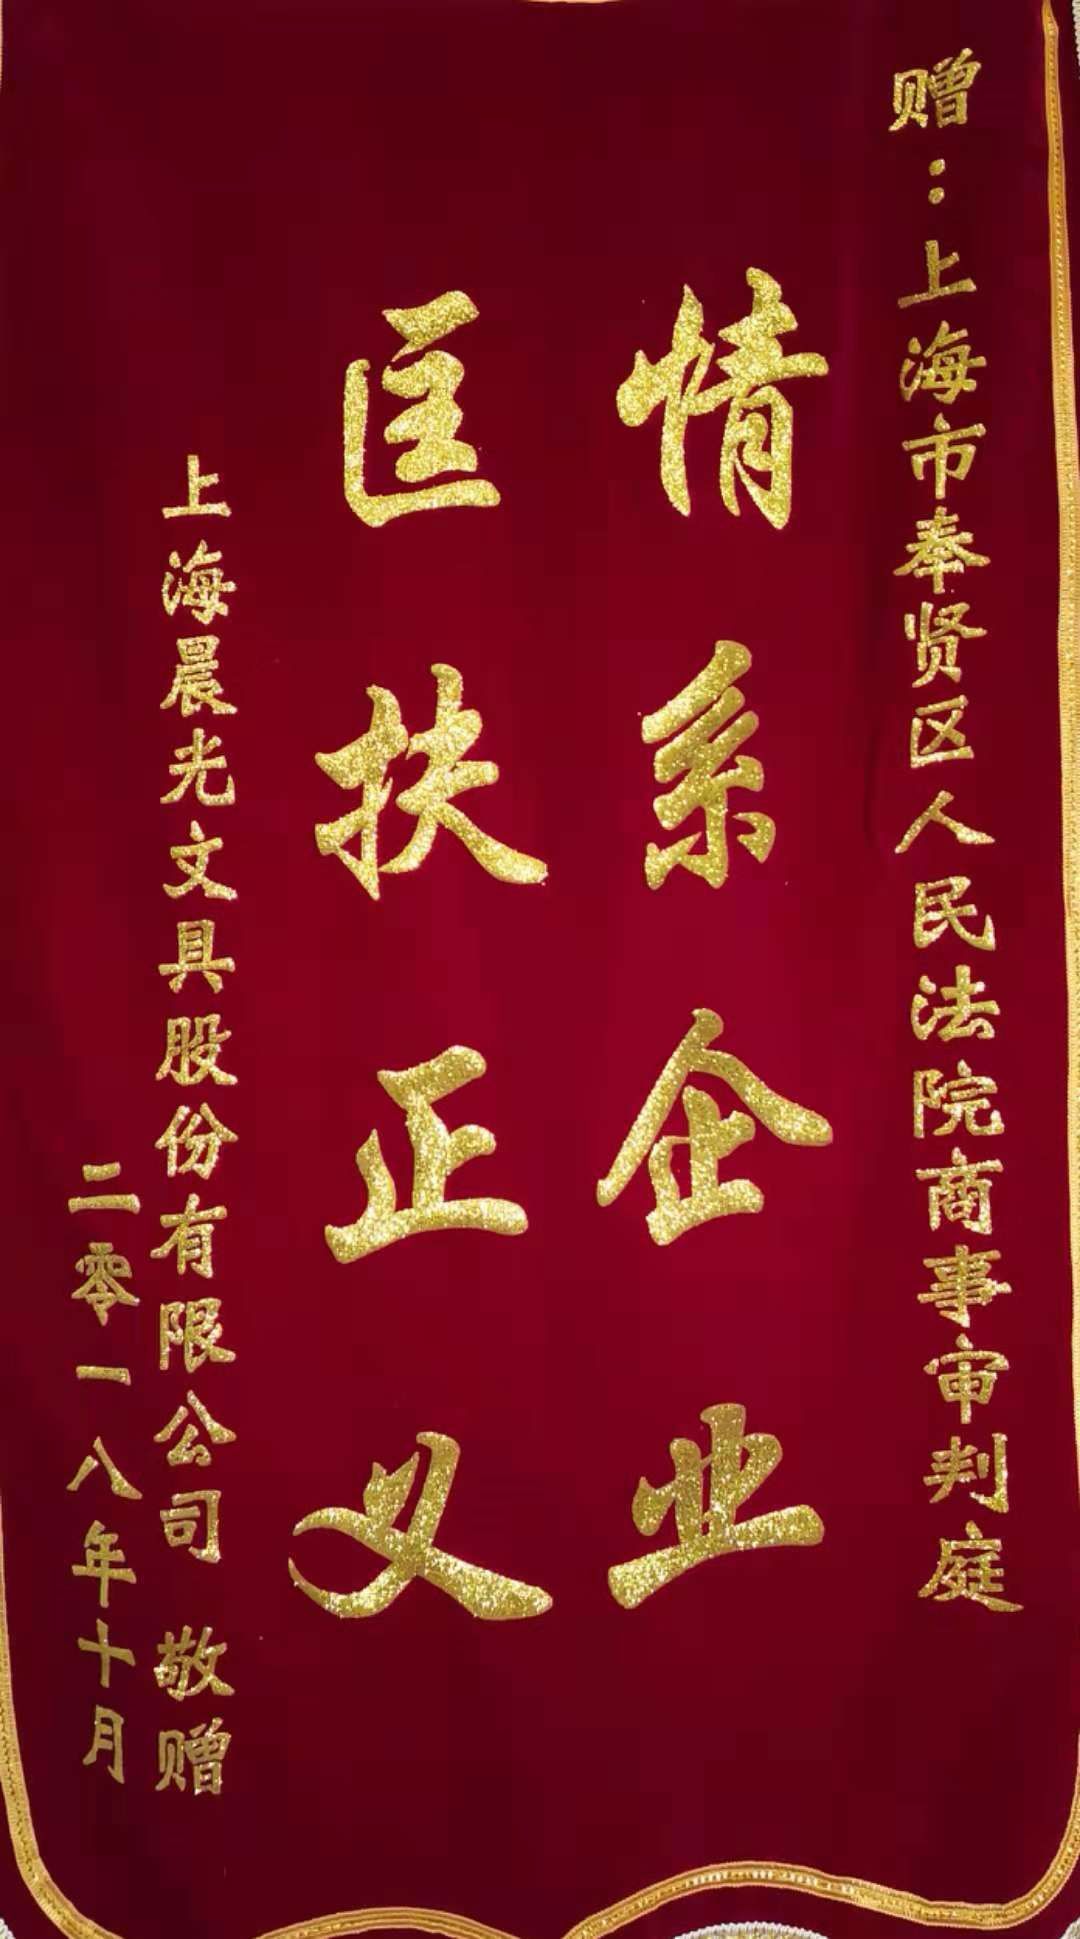 赠：上海市奉贤区人民法院商事审判庭
情系企业
匡扶正义
上海晨光文具股份有限公司 敬赠
二零一八年十月